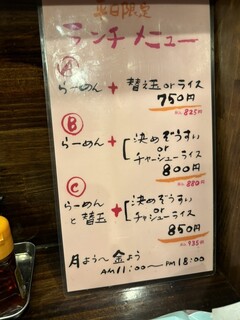 平日限定
ランチメニュー
Ⓐ
らーめん + 替え玉orライス
750円
税込825円
Ⓑ
らーめん + [決めぞうすい
or
チャーシューライス
800円
税込880円
Ⓒ
らーめん
と替玉 + [決めぞうすい
or
チャーシューライス
850円
税込935円
月よう〜金よう
AM11:00〜PM18:00